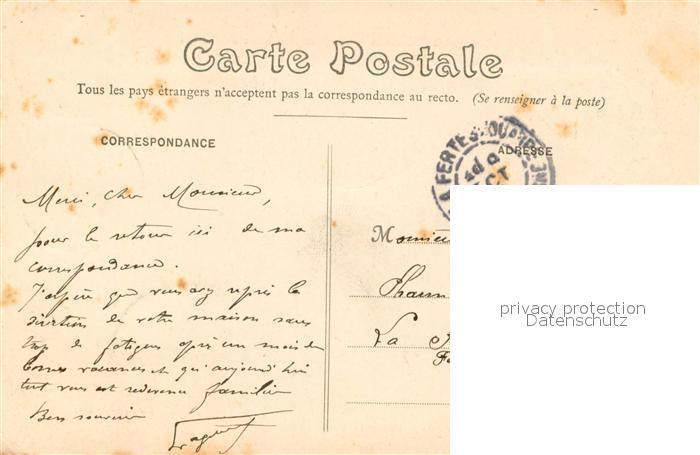 Carte Postale
Tous les pays étrangers n'acceptent pas la correspondance au recto. (Se renseigner à la poste)
CORRESPONDANCE
ADRESSE
LA FERTE-S-JOUARRE
OCT
Merci, cher Monsieur,
pour le retour ici de ma
correspondance.
J'espère que vous avez repris la
direction de votre maison sans
trop de fatigues après un mois de
bonnes vacances et qu'aujourd'hui
tout vous est redevenu familier
Bon souvenir
Monsieu
Pharm
La
privacy protection
Datenschutz